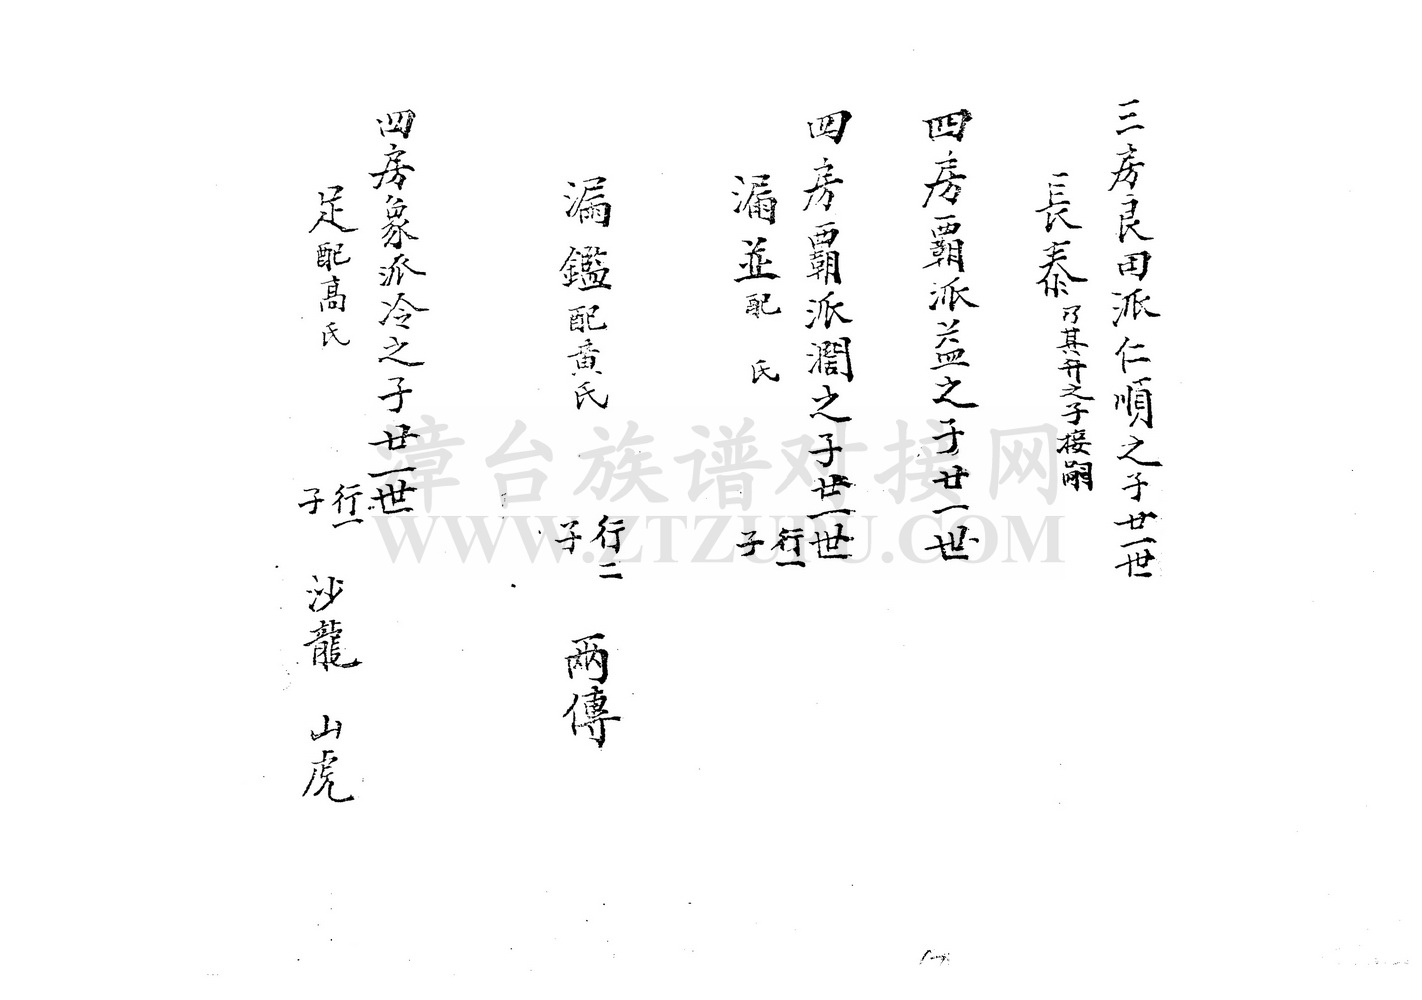 三房良田派仁順之子廿一世
長泰乃其升之子接嗣
四房霸派益之子廿一世
四房霸派濶之子廿一世
漏並配 氏 行一 子
漏鑑配黃氏 行二 子 兩傳
四房象派冷之子廿一世
足配高氏 行一 子 沙龍 山虎
漳台族谱对接网
WWW.ZTZUPU.COM